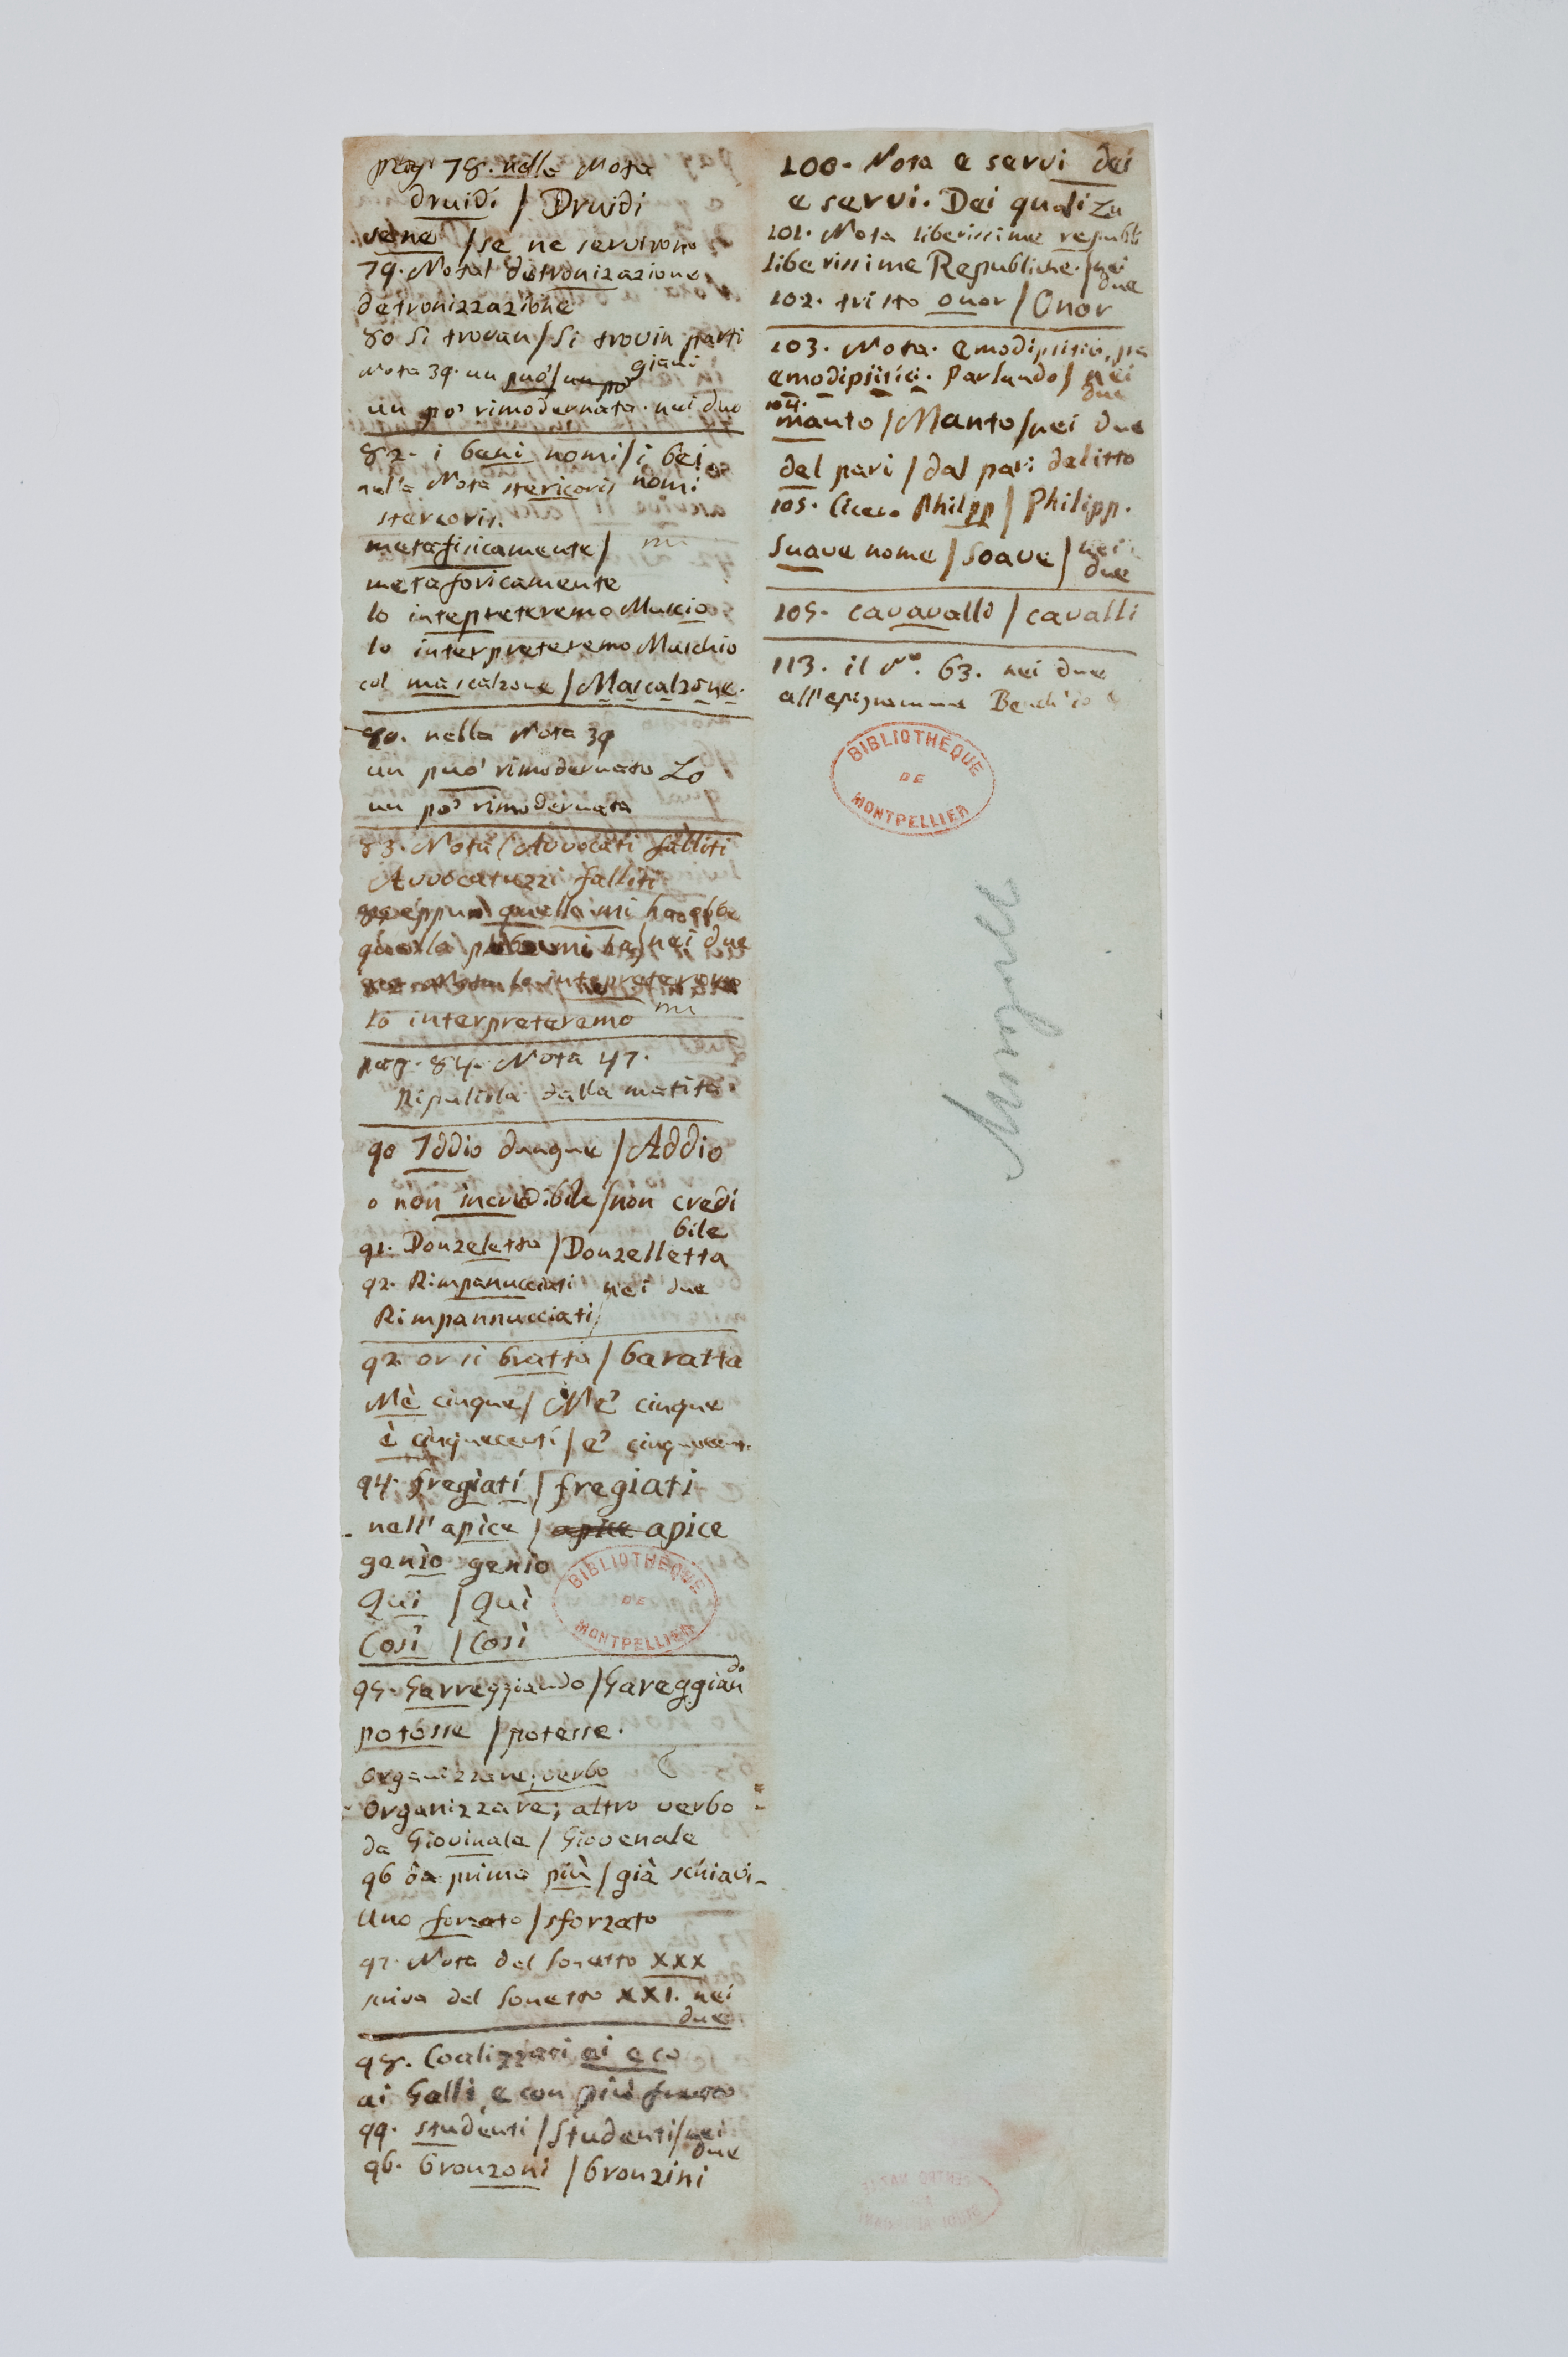 pag. 78. nella Nota
druidi / Druidi
sene / se ne servirono
79. Nota / detronizazione
detronizzazione
80 Si trovan / Si trovin parti
giani
Nota 39. un può / un po'
un po' rimodernata. nei due
82. i beni nomi / i bei
nella Nota stericoris nomi
stercoris.
metafisicamente /
metaforicamente
lo intepreteremo Muscio
lo interpreteremo Muschio
col mascalzone / Mascalzone.
80. nella Nota 39
un può rimodernato Lo
un po' rimodernata
83. Nota / Avvocati falliti
Avvocatuzzi falliti
eppur quella mi
quella mi ha / nei due
lo interpreteremo
pag. 84. Nota 47.
Ripuliscila dalla matita
90 Iddio dunque / Addio
o non incredibile / non credi
bile
91. Donzeletta / Donzelletta
92. Rimpanucciati nei due
Rimpannucciati
92. or si bratta / baratta
Mè cinque / M'e' cinque
è cinquecenti / e' cinquecent.
94. fregìati / fregiati
nell' apìce / apice apice
genìo genio
Qui / Quì
Cosî / Così
95. Garreggiando / Gareggian
do
potosse / potesse.
Organizzare; verbo
Organizzare; altro verbo
da Giovinale / Giovenale
96 da prima più / già schiavi
Uno forzato / sforzato
97. Nota del Sonetto XXX
scriva del Sonetto XXI. nei
due
98. Coalizzari ai e co
ai Galli, e con più
99. studenti / Studenti / nei
due
96. bronzoni / bronzini
100. Nota e servi dei
e servi. Dei quali Zu
101. Nota liberissime republi
liberissime Republiche. / nei
due
102. tristo onor / Onor
103. Nota. emodipsitio, pa
emodipsitici. Parlando / nei
due
104.
manto / Manto / nei due
del pari / dal pari delitto
105. Cicero Philpp / Philipp.
Suave nome / Soave / nei
due
105. cavavalli / cavalli
113. il N.º 63. nei due
all'epigramma
BIBLIOTHÈQUE
DE
MONTPELLIER
BIBLIOTHÈQUE
DE
MONTPELLIER